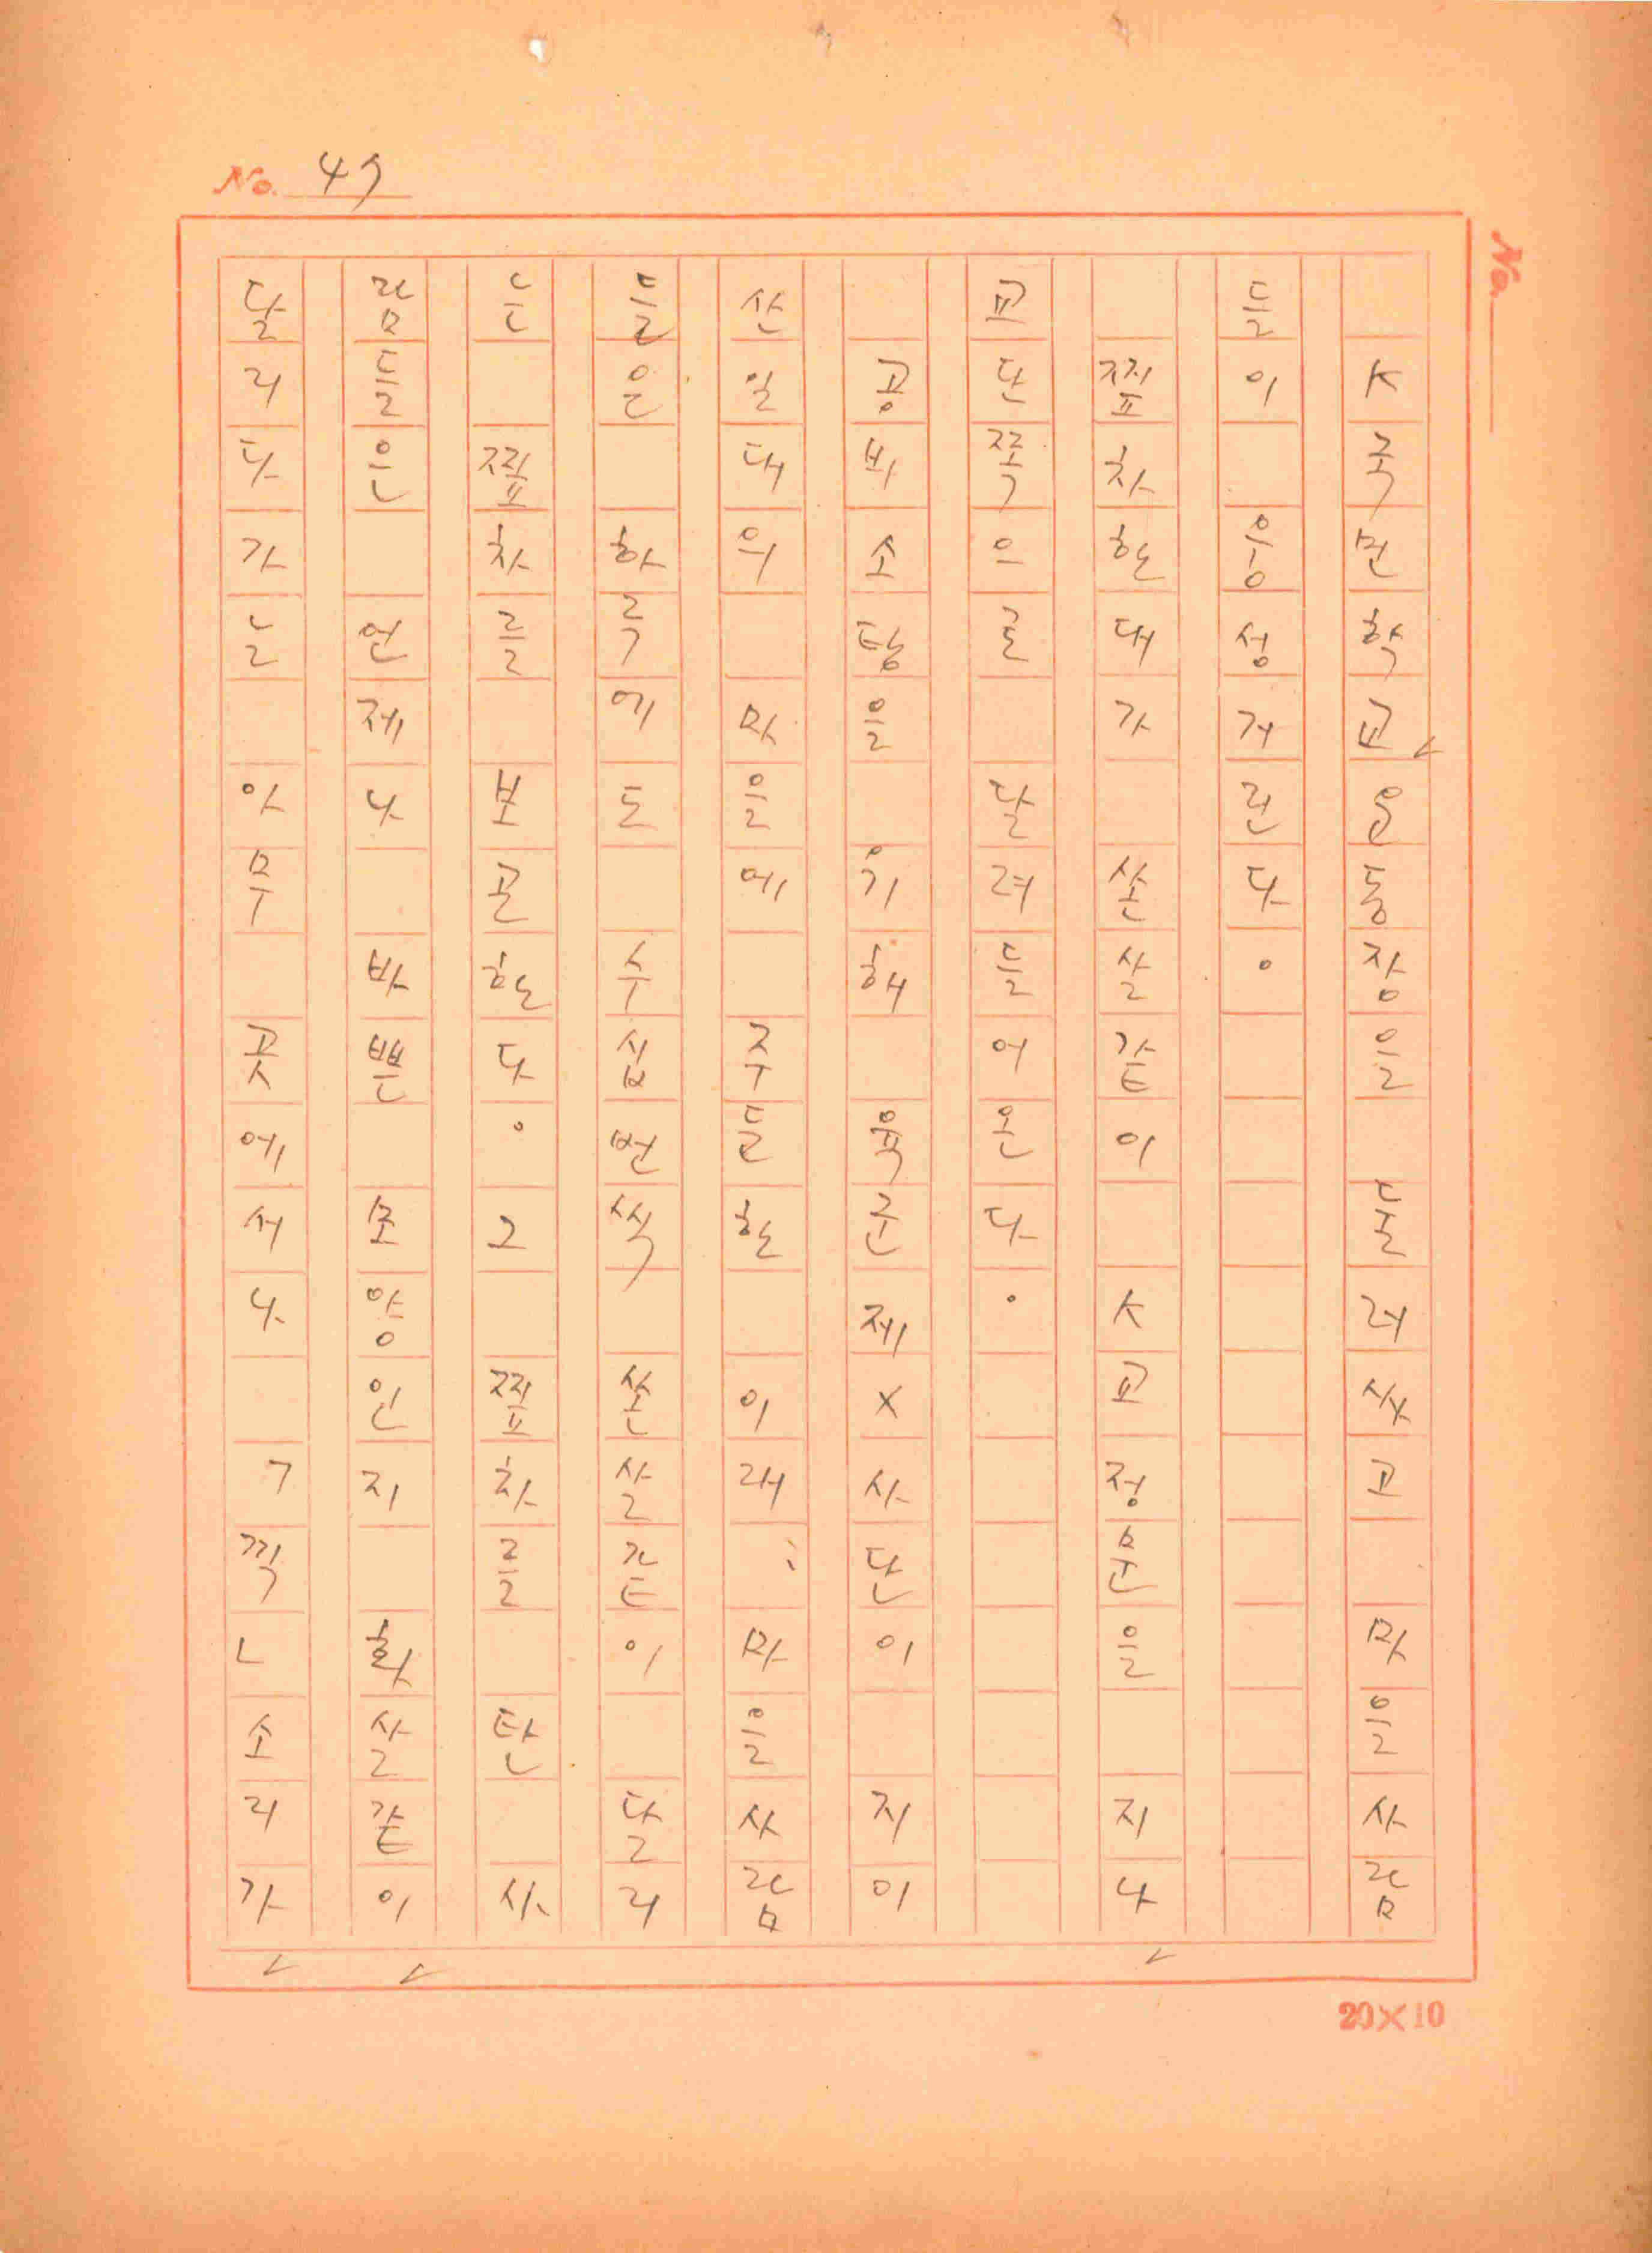 No. 47
No.
K국민학교 운동장을 둘러싸고 마을사람
들이 웅성거린다。
찦차 한대가 쏜살같이 K교 정문을 지나
교단쪽으로 달려들어온다。
공비소탕을 위해 육군제X사단이 지이
산일대의 마을에 주둔한 이래、마을사람
들은 하루에도 수십번씩 쏜살같이 달리
는 찦차를 보곤한다。그 찦차를 탄 사
람들은 언제나 바쁜 모양인지 화살같이
달리다가는 아무 곳에서나 「끽」소리가
20×10